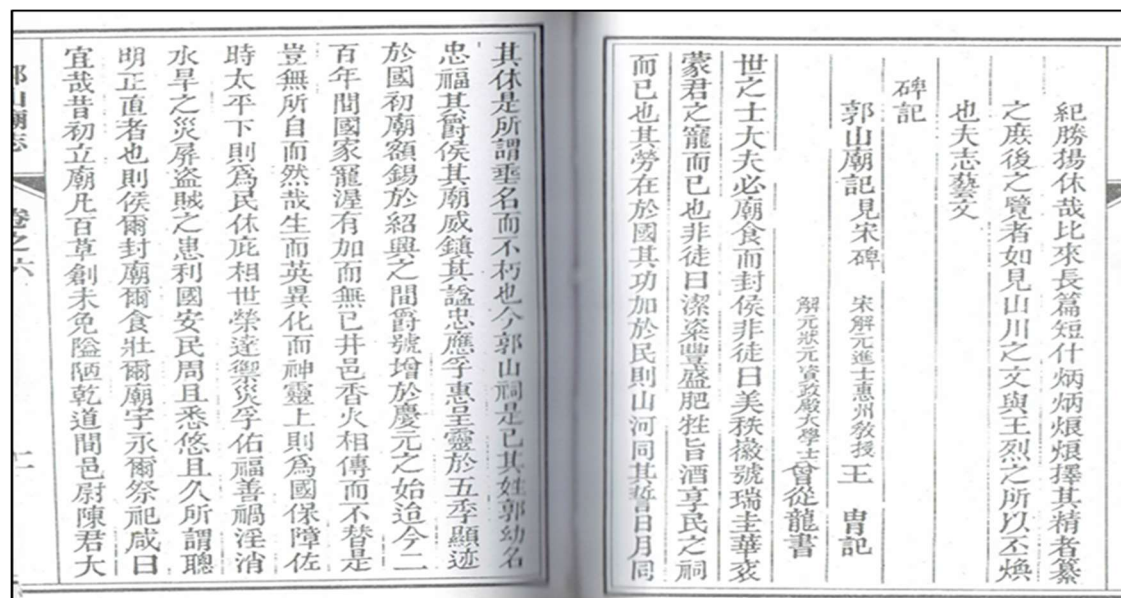 紀勝揚休哉比來長篇短什炳炳烺烺擇其精者纂
之庶後之覽者如見山川之文與王烈之所以丕煥
也夫志藝文
碑記
郭山廟記見宋碑 宋解元進士惠州教授王 胄記
解元狀元資政殿大學士曾從龍書
世之士大夫必廟食而封侯非徒曰美秩徽號瑞圭華衮
蒙君之寵而已也非徒曰潔粢豐盛肥牲旨酒享民之祠
而已也其勞在於國其功加於民則山河同其誓日月同
其休是所謂垂名而不朽也今郭山祠是已其姓郭幼名
忠福其爵侯其廟威鎮其諡忠應孚惠呈靈於五季顯迹
於國初廟額錫於紹興之間爵號增於慶元之始迨今二
百年間國家寵渥有加而無已井邑香火相傳而不替是
豈無所自而然哉生而英異化而神靈上則爲國保障佐
時太平下則爲民休庇相世榮達禦災孚佑福善禍淫消
水旱之災屏盜賊之患利國安民周且悉悠且久所謂聰
明正直者也則侯爾封廟爾食壯爾廟宇永爾祭祀咸曰
宜哉昔初立廟凡百草創未免隘陋乾道間邑尉陳君大
郭山廟志 卷之六 二